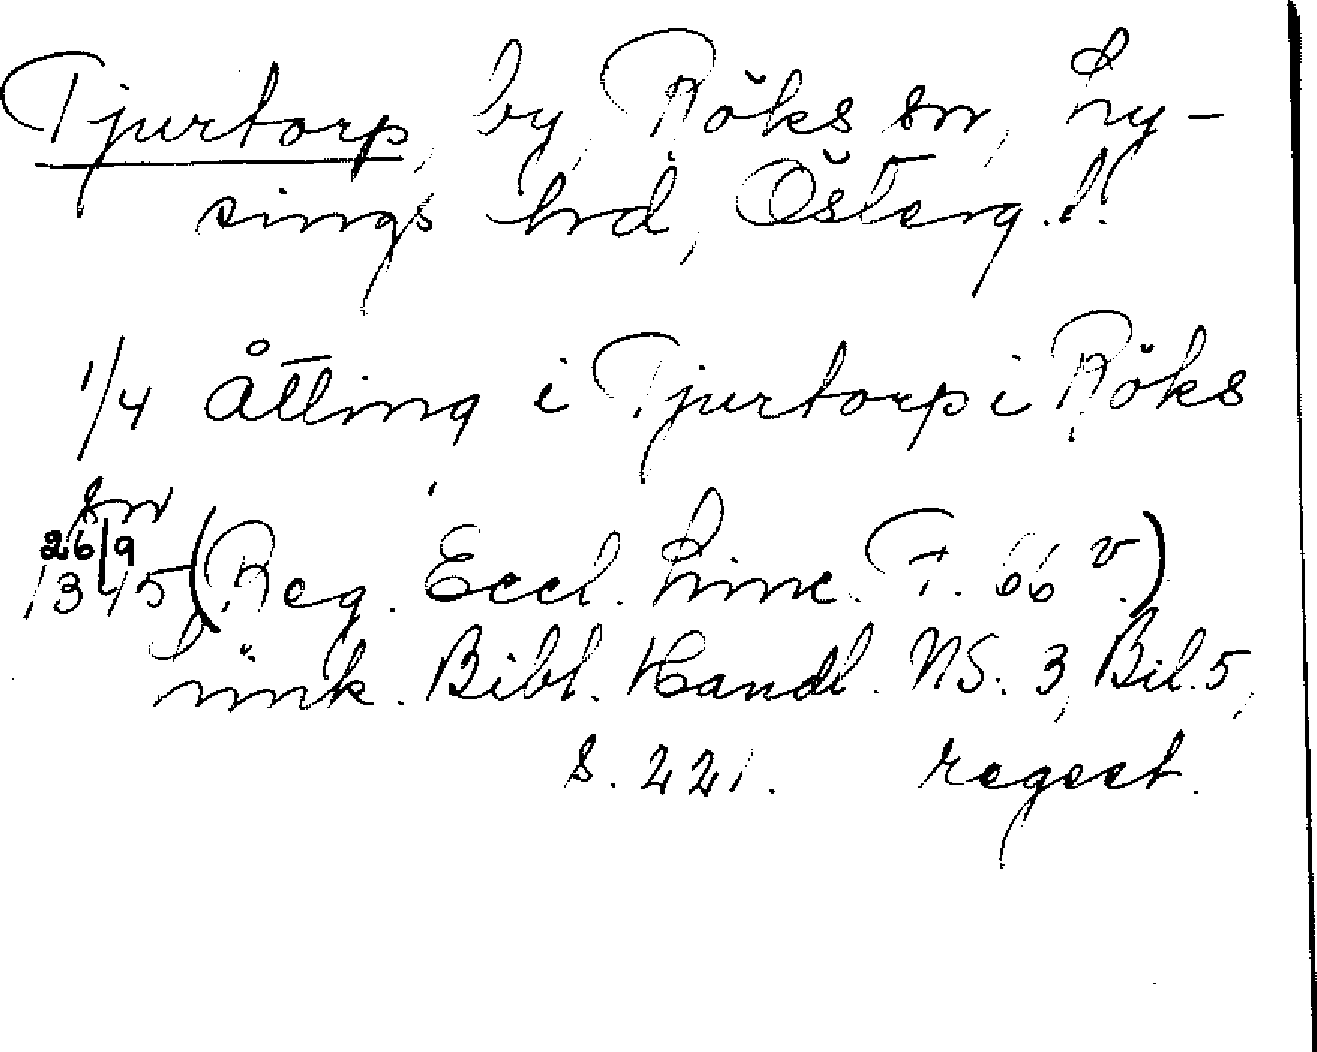 Tjurtorp, by, Röks sn, Ly-
sings hrd, Österg. l.
1/4 åtting i Tjurtorp i Röks
sn
26/9
1345 (Reg. Eccl. Linc. F. 66 v.)
Link. Bibl. Handl. NS. 3, Bil. 5,
s. 221. regest.